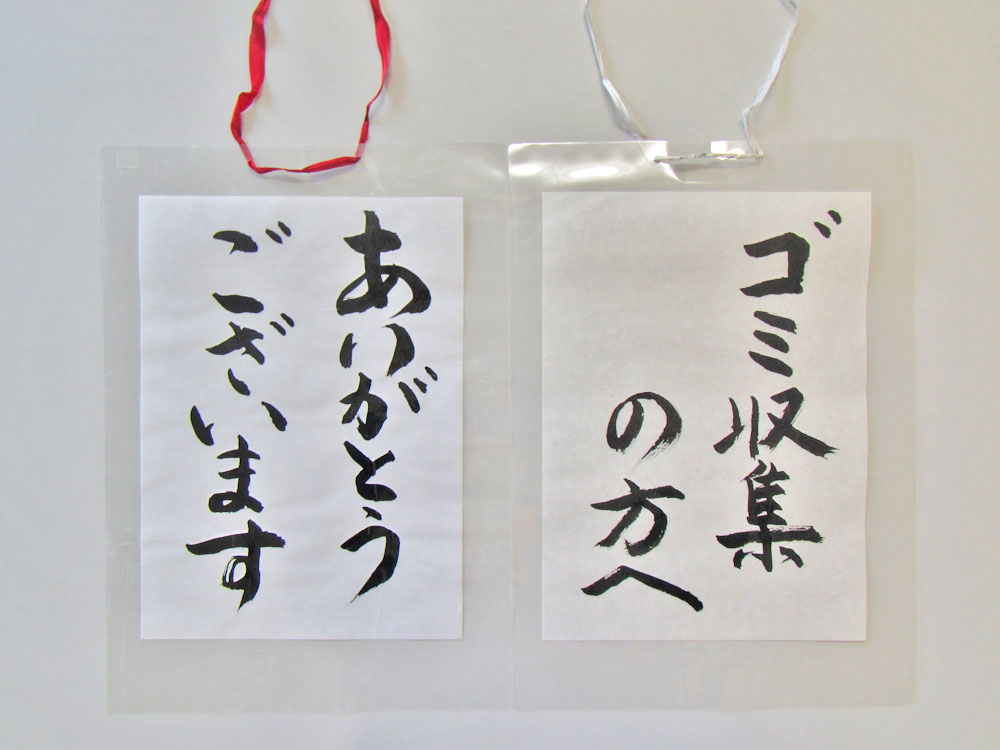 ゴミ収集
の方へ
ありがとう
ございます